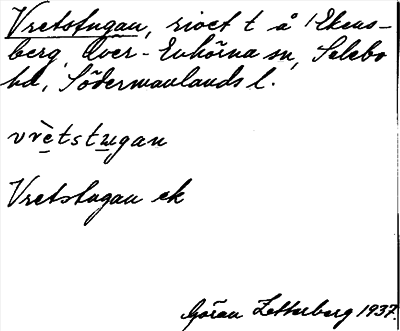 Vretstugan, rivet t å Ekens-
berg, Över-Enhörna sn, Selebo
hd, Södermanlands l.
vrètstugan
Vretstugan ek
Göran Zetterberg 1937.